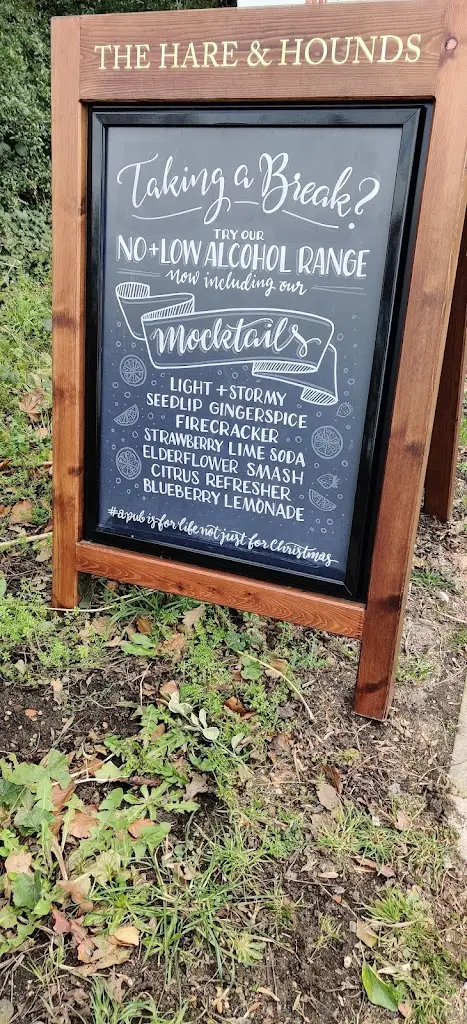 THE HARE & HOUNDS
Taking a Break?
TRY OUR
NO+LOW ALCOHOL RANGE
now including our
Mocktails
LIGHT + STORMY
SEEDLIP GINGERSPICE
FIRECRACKER
STRAWBERRY LIME SODA
ELDERFLOWER SMASH
CITRUS REFRESHER
BLUEBERRY LEMONADE
#apub is for life not just for Christmas